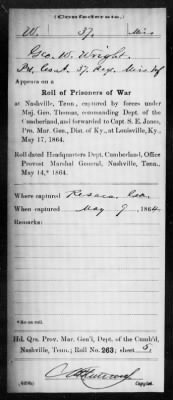 (Confederate.)
W. 37. Miss
Geo. W. Wright.
Pt. Co. A. 37. Reg. Miss Inf
Appears on a
Roll of Prisoners of War
at Nashville, Tenn., captured by forces under
Maj. Gen. Thomas, commanding Dept. of the
Cumberland, and forwarded to Capt. S. E. Jones,
Pro. Mar. Gen., Dist. of Ky., at Louisville, Ky.,
May 17, 1864.
Roll dated Headquarters Dept. Cumberland, Office
Provost Marshal General, Nashville, Tenn.,
May 14,* 1864.
Where captured Resaca, Ga.
When captured May 9, 1864.
Remarks:
*So on roll.
Hd. Qrs. Prov. Mar. Gen'l, Dept. of the Cumb'd,
Nashville, Tenn.; Roll No. 263; sheet 5,
Copyist.